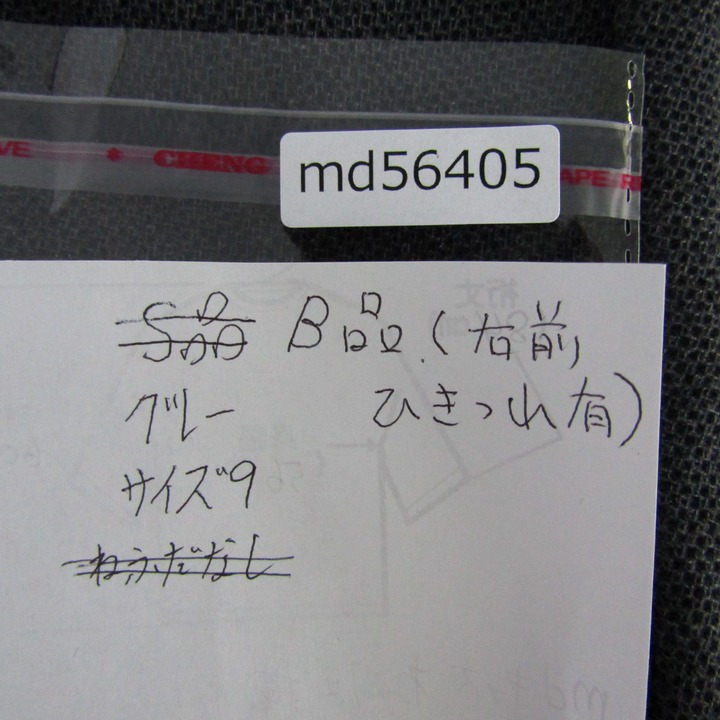 VE * CHENG
md56405
APE R
S品 B品 (右前
グレー ひきつれ有)
サイズ9
ねふだなし
裄丈